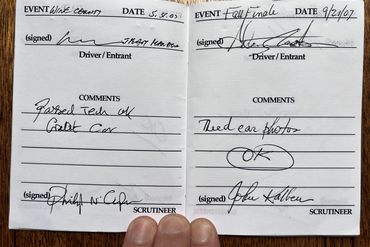 EVENT Wine County DATE 5.5.07
(signed)
Driver / Entrant
COMMENTS
Passed Tech ok
Great Car
(signed) Philip N.
SCRUTINEER
EVENT Fall Finale DATE 9/21/07
(signed)
Driver / Entrant
COMMENTS
Need car photos
OK
(signed) John Kolben
SCRUTINEER